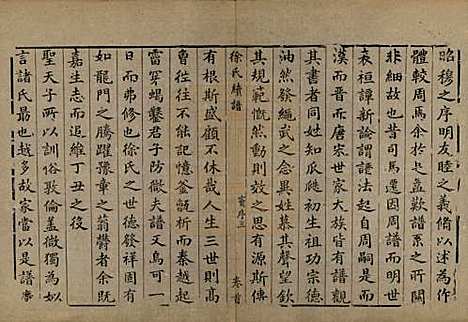 昭穆之序明友睦之義脩以述為作
體較周焉余於是歎譜系之所關
非細故也昔司馬遷因周譜而明世
表桓譚新論謂譜法起自周嗣是
漢而晉而唐宋世家大族皆有譜觀
其書者同姓知瓜瓞初生祖功宗德
油然發繩武之念異姓慕其聲望欽
其規範慨然動則效之思有源斯傳
徐氏續譜
序三
卷首
有根斯盛顧不休哉人生三世則高
曾不能悉記憶至於秦越起
雷穿蟻鑿君子防微夫譜可一
日而弗修也徐氏之世德發祥固有
如龍門之騰躍豫章之蓊欝者余既
嘉生志而追維丁丑之後
聖天子所以訓俗敦倫盖微獨為如
言諸氏最也越多故家當以是譜